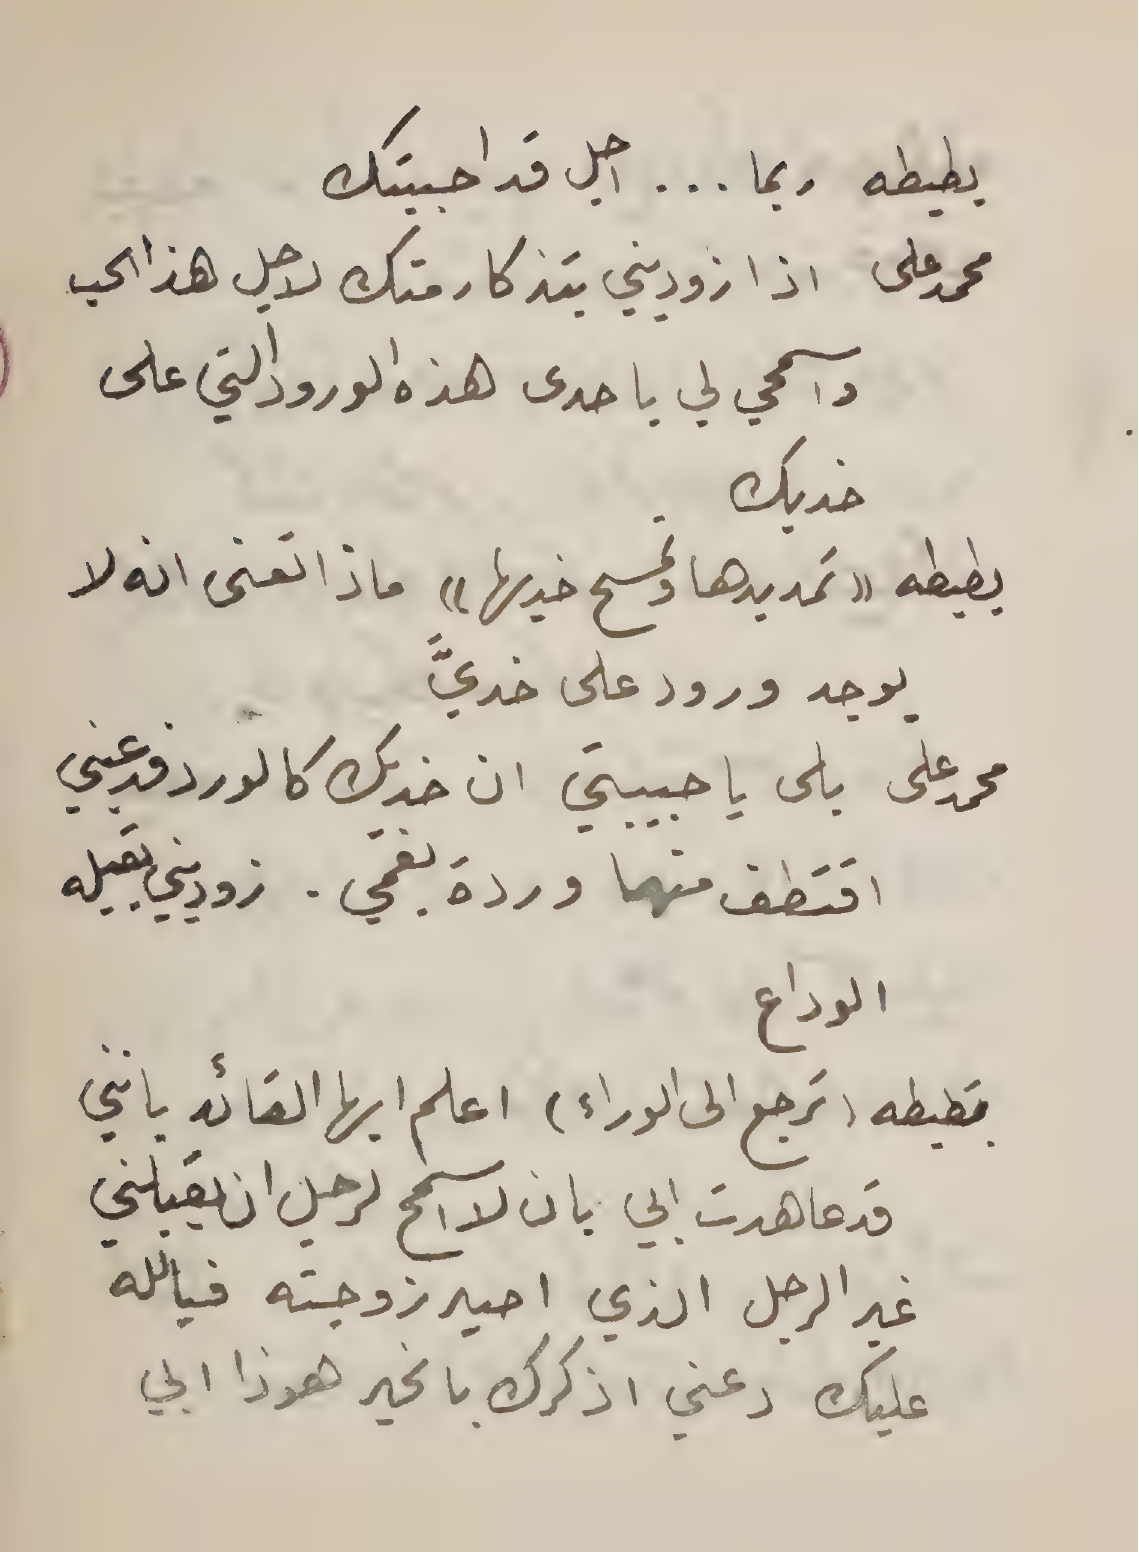 بطيطه ربما ... اجل قد احببتك
محمد علي اذا زوديني بتذكار منك لاجل هذا الحب
واسمحي لي باحدى هذه الورود التي على
خديك
بطيطه «تمد يدها وتمسح خديها» ماذا تعنى انه لا
يوجد ورود على خديَّ
محمد علي بلى يا حبيبتي ان خديك كالورد فدعيني
اقتطف منهما وردة بفمي . زوديني بقبيله
الوداع
بطيطه (ترجع الى الوراء) اعلم ايها القائد بانني
قد عاهدت ابي بان لا اسمح لرجل ان يقبلني
غير الرجل الذي اصير زوجته فبالله
عليك دعني اذكرك بالخير هوذا ابي